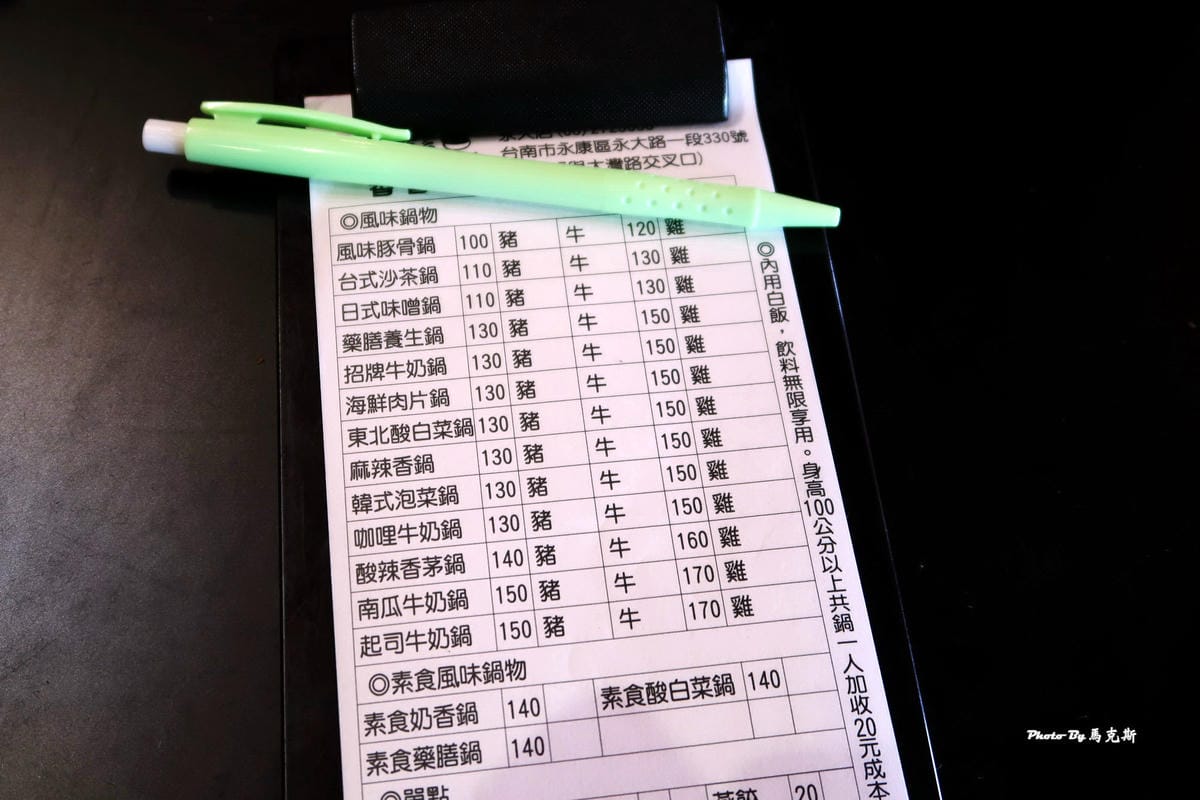 台南市永康區永大路一段330號
大灣路交叉口)
◎風味鍋物
風味豚骨鍋 100 豬 牛 120 雞
台式沙茶鍋 110 豬 牛 130 雞
日式味噌鍋 110 豬 牛 130 雞
藥膳養生鍋 130 豬 牛 150 雞
招牌牛奶鍋 130 豬 牛 150 雞
海鮮肉片鍋 130 豬 牛 150 雞
東北酸白菜鍋 130 豬 牛 150 雞
麻辣香鍋 130 豬 牛 150 雞
韓式泡菜鍋 130 豬 牛 150 雞
咖哩牛奶鍋 130 豬 牛 150 雞
酸辣香茅鍋 140 豬 牛 160 雞
南瓜牛奶鍋 150 豬 牛 170 雞
起司牛奶鍋 150 豬 牛 170 雞
◎素食風味鍋物
素食奶香鍋 140 素食酸白菜鍋 140
素食藥膳鍋 140
◎單點
燕餃 20
◎內用白飯，飲料無限享用。身高100公分以上共鍋一人加收20元成本
Photo By 馬克斯